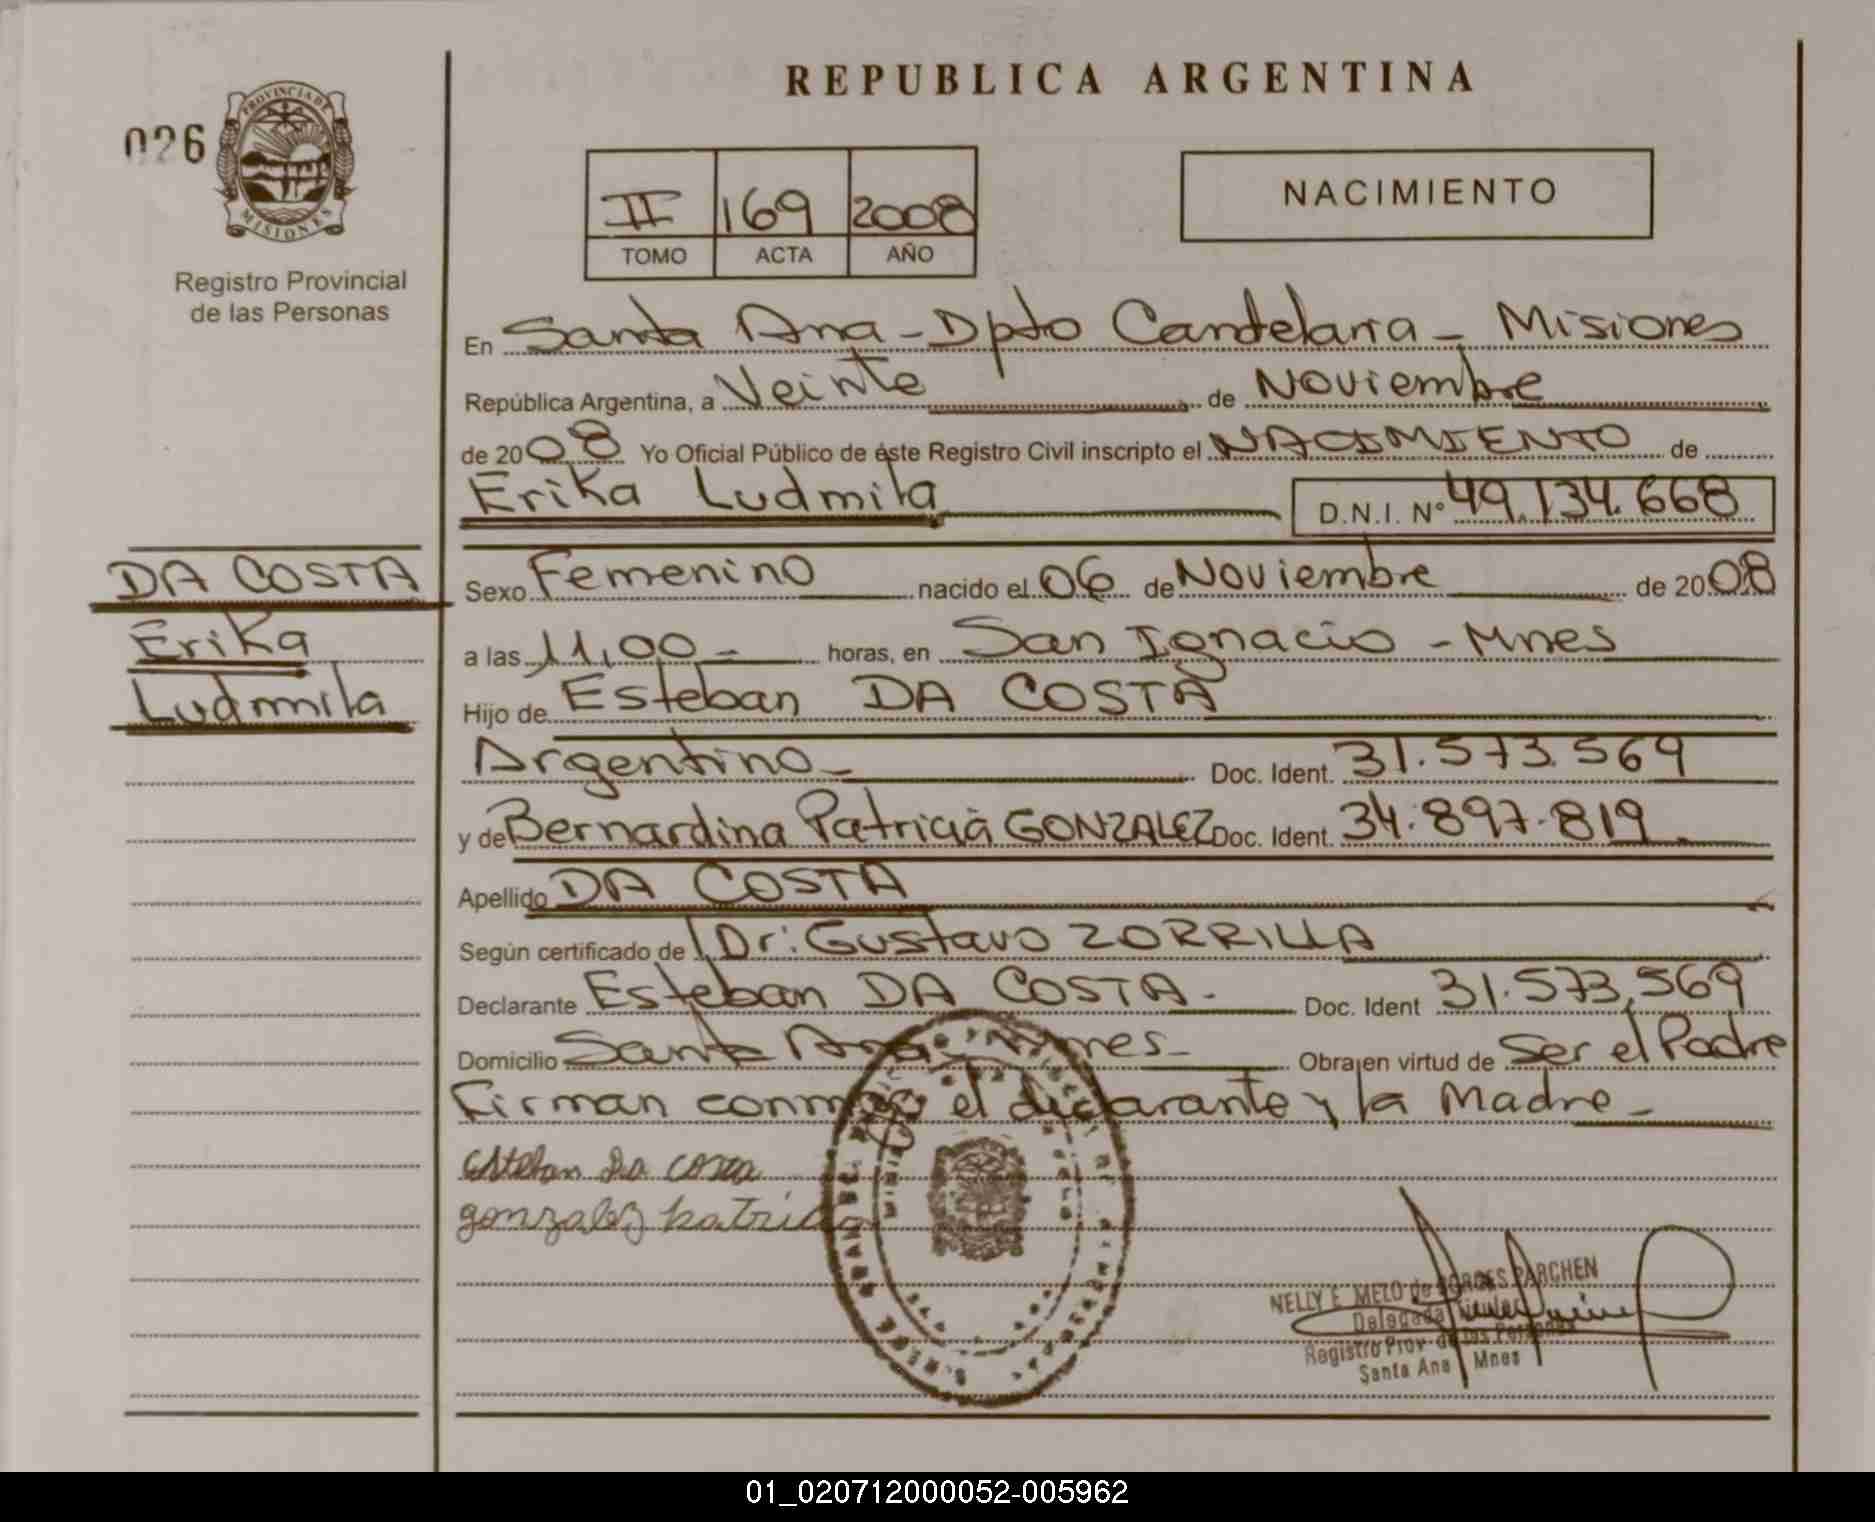 REPUBLICA ARGENTINA
026
PROVINCIA DE
MISIONES
Registro Provincial
de las Personas
II 169 2008
TOMO ACTA AÑO
NACIMIENTO
En Santa Ana - Dpto Candelaria - Misiones
República Argentina, a Veinte de Noviembre
de 2008 Yo Oficial Público de éste Registro Civil inscripto el NACIMIENTO de
Erika Ludmila D.N.I. Nº 49.134.668
DA COSTA
Erika
Ludmila
Sexo Femenino nacido el 06 de Noviembre de 2008
a las 11,00 - horas, en San Ignacio - Mnes
Hijo de Esteban DA COSTA
Argentino - Doc. Ident. 31.573.569
y de Bernardina Patricia GONZALEZ Doc. Ident. 34.897.819 -
Apellido DA COSTA
Según certificado de Dr: Gustavo ZORRILLA
Declarante Esteban DA COSTA - Doc. Ident 31.573.569
Domicilio Santa Ana - Mnes - Obra en virtud de Ser el Padre
Firman conmigo el declarante y la Madre -
Esteban Da Costa
gonzalez Patricia
NELLY E. MELO de BORGES PARCHEN
Delegada Titular
Registro Prov. de las Personas
Santa Ana Mnes
01_020712000052-005962